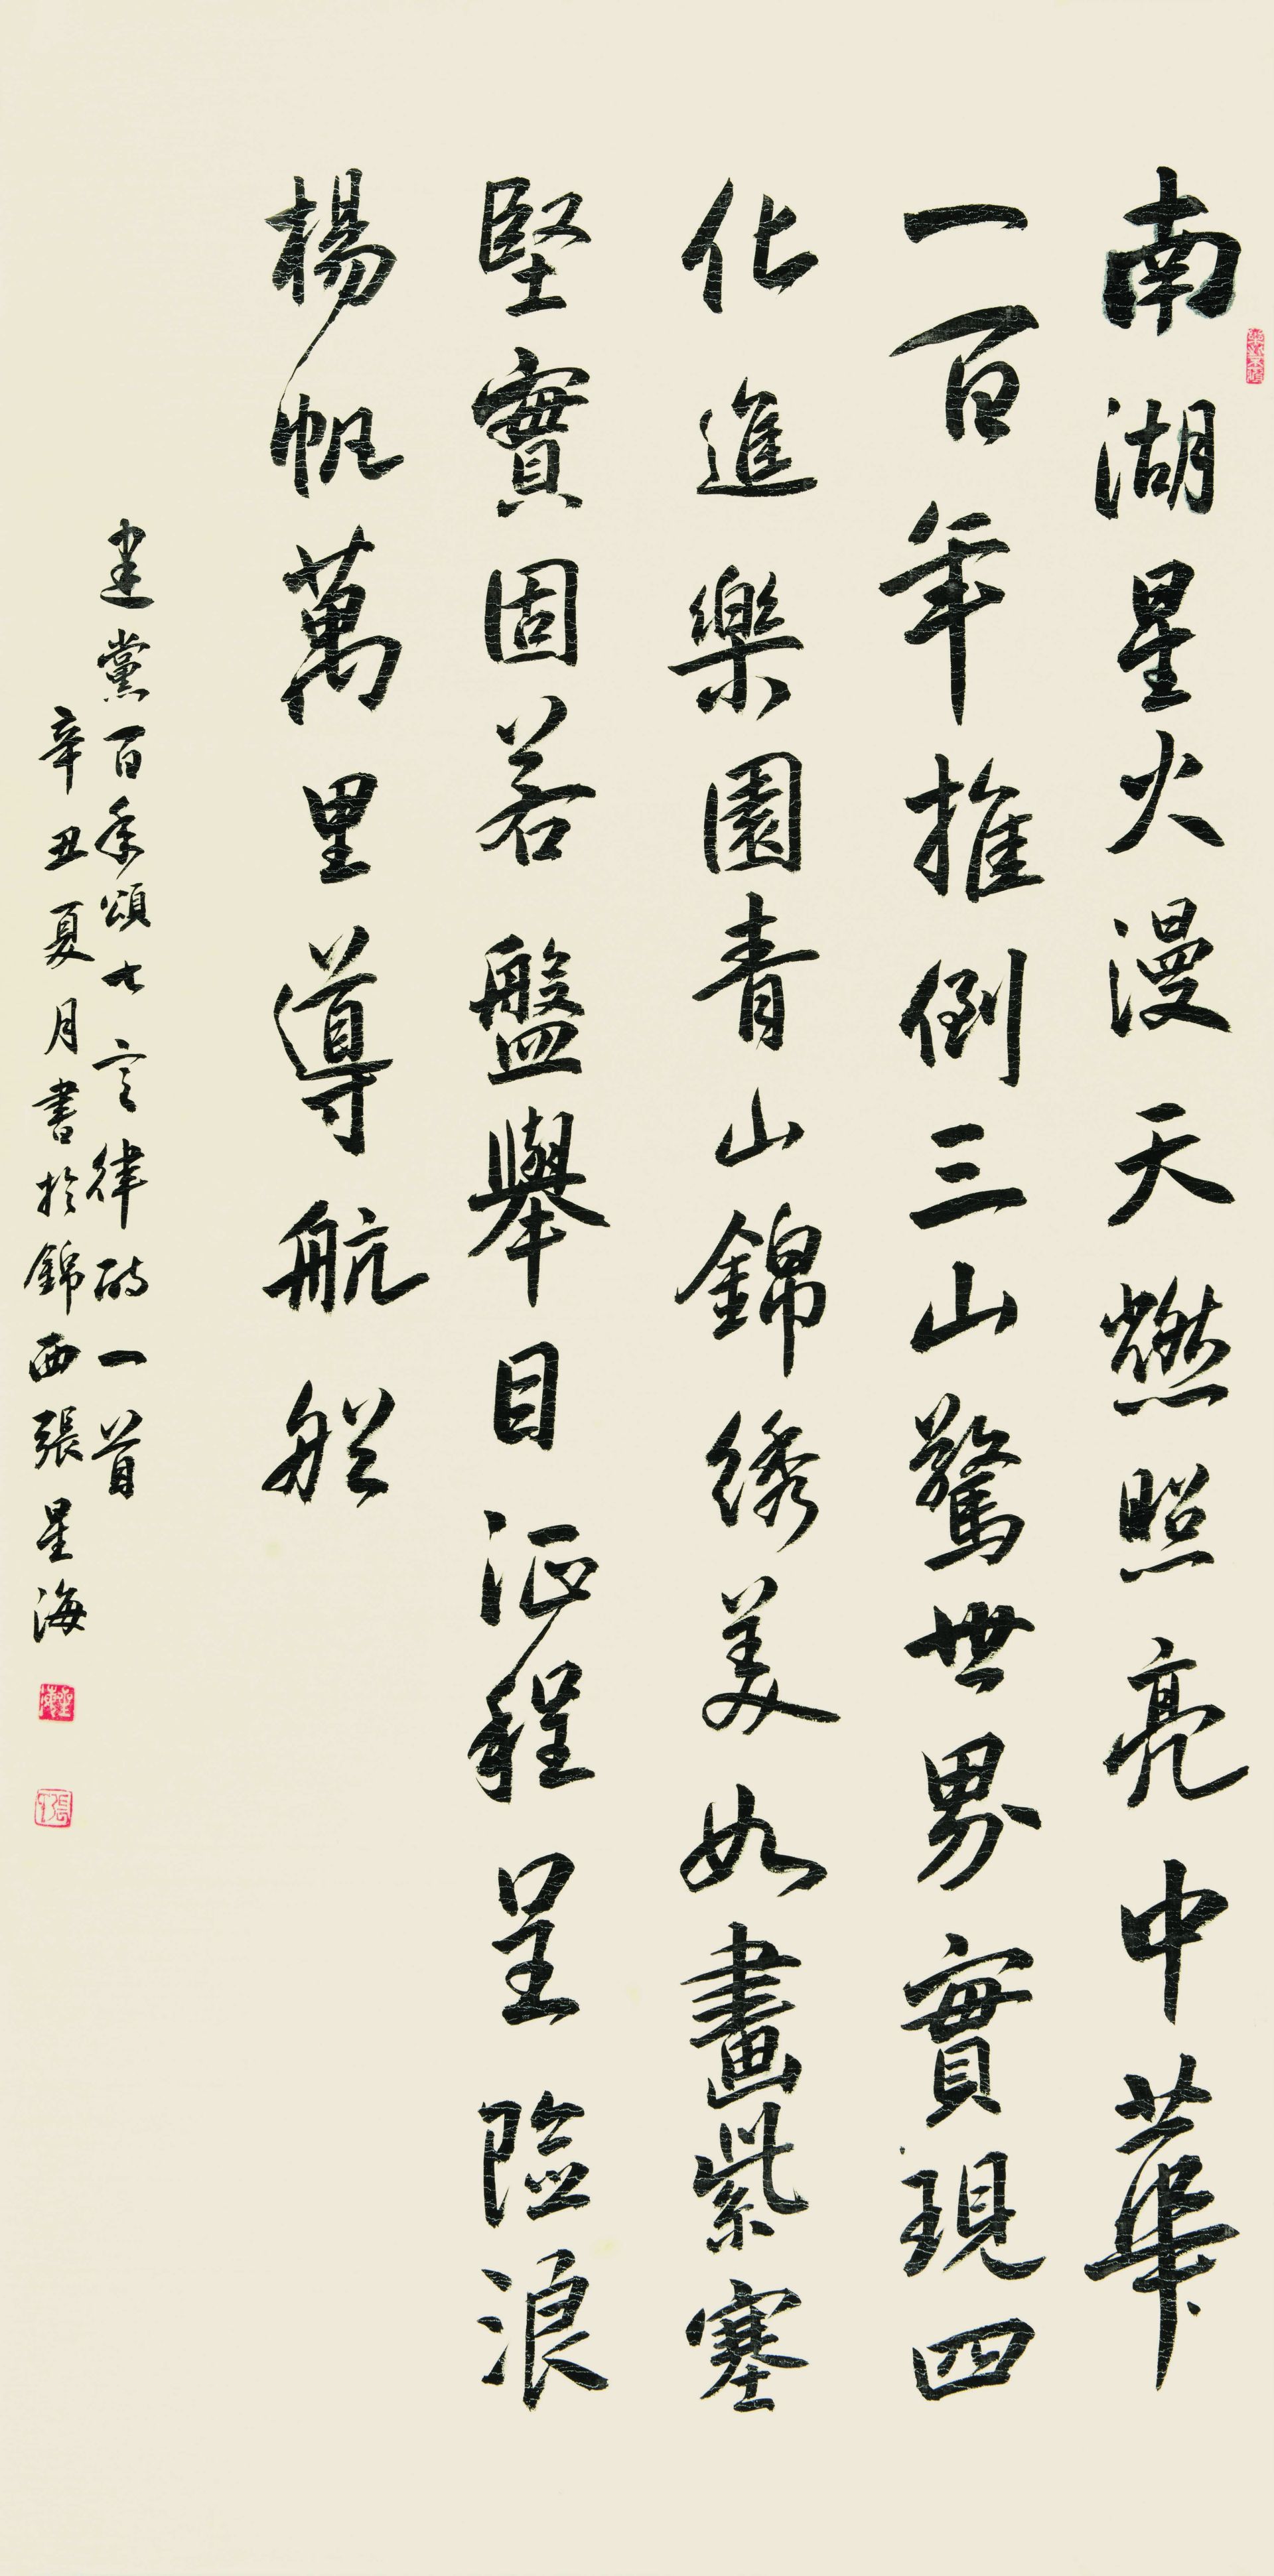 南湖星火漫天燃照亮中華
一百年推倒三山驚世界實現四
化進樂園青山錦绣美如畫紫塞
堅實固若盤舉目征程呈險浪
楊帆萬里導航船
建黨百年頌七言律詩一首
辛丑夏月書於錦西張星海